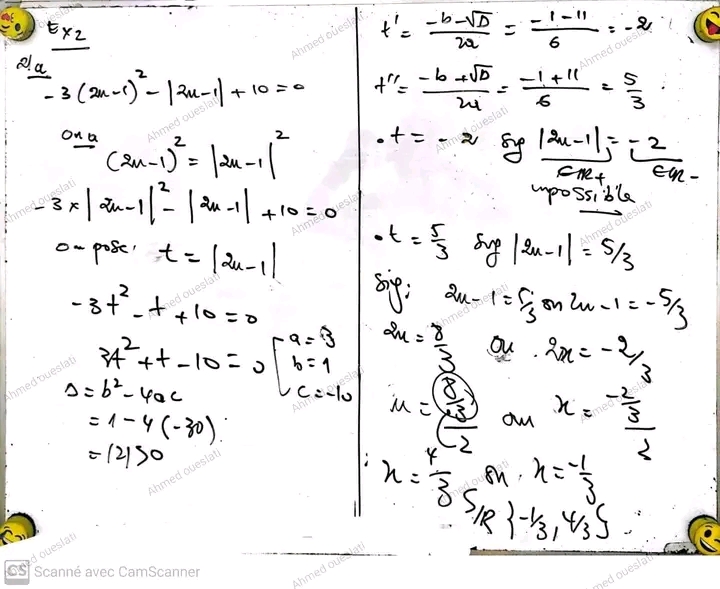 Ex2
2/a
-3(2x-1)² - |2x-1| + 10 = 0
on a
(2x-1)² = |2x-1|²
-3 × |2x-1|² - |2x-1| + 10 = 0
on pose: t = |2x-1|
-3t² - t + 10 = 0
3t² + t - 10 = 0
a = 3
b = 1
c = -10
Δ = b² - 4ac
= 1 - 4(-30)
= 121 > 0
t' = (-b-√D)/2a = (-1-11)/6 = -2
t'' = (-b+√D)/2a = (-1+11)/6 = 5/3
• t = -2 sig |2x-1| = -2
∈ IR+ ∈ IR-
impossible
• t = 5/3 sig |2x-1| = 5/3
sig: 2x-1 = 5/3 ou 2x-1 = -5/3
2x = 8/3 ou 2x = -2/3
x = (8/3)/2 ou x = (-2/3)/2
x = 4/3 ou x = -1/3
S/R {-1/3, 4/3}
CS Scanné avec CamScanner
Ahmed oueslati